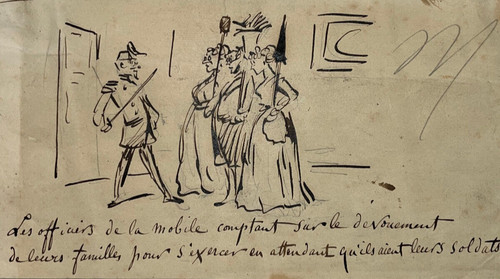 Les officiers de la mobile comptant sur le dévouement
de leurs familles pour s'exercer en attendant qu'ils aient leurs soldats